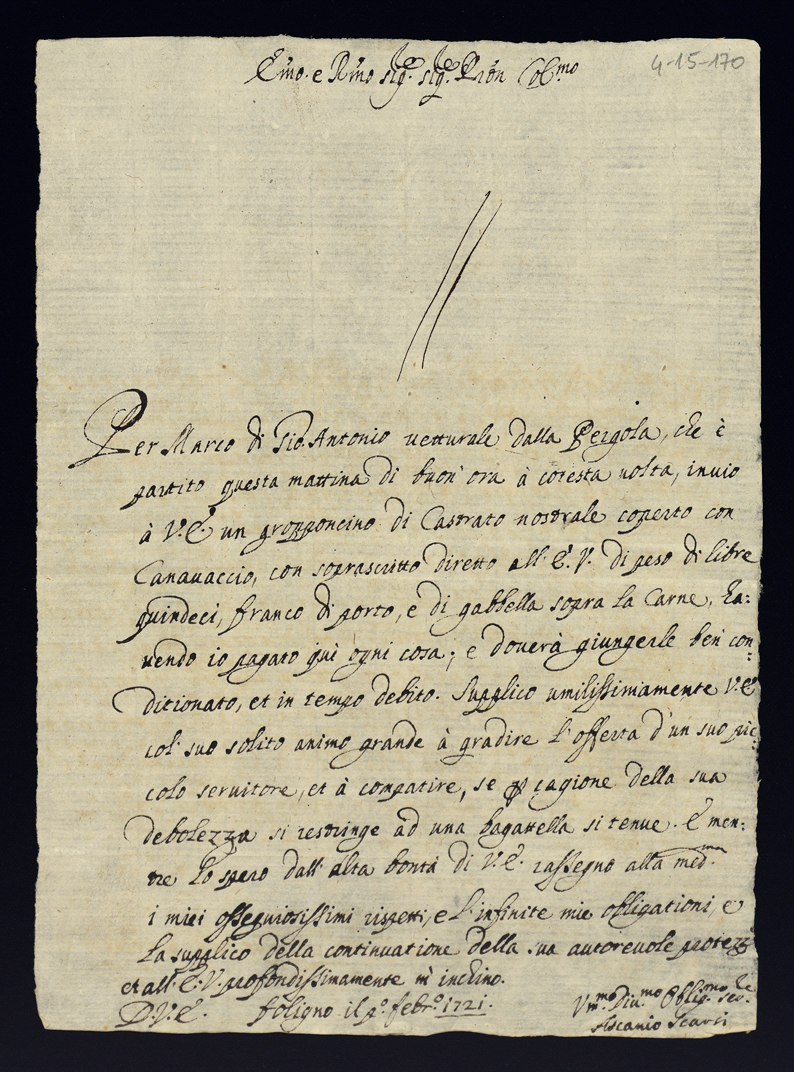 Em̃o. e Rm̃o Sig.re Sig.re Pron Col.mo
4-15-170
Per Marco di Gio: Antonio vetturale dalla Pergola, che è
partito questa mattina di buon' ora à cotesta volta, invio
à V. E. un gropponcino di Castrato nostrale coperto con
Canavaccio, con soprascritto diretto all' E. V. di peso di libre
quindeci, franco di porto, e di gabbella sopra la Carne, ha:
vendo io pagato quì ogni cosa; e doverà giungerle ben con:
ditionato, et in tempo debito. Supplico umilissimamente V. E.
col' suo solito animo grande à gradire l'offerta d'un suo pic:
colo servitore, et à compatire, se ꝑ cagione della sua
debolezza si restringe ad una bagattella si tenue. E men:
tre lo spero dall' alta bontà di V. E. rassegno alla med.ma
i miei ossequiosissimi rispetti, e l'infinite mie obligationi, e
la supplico della continuatione della sua autorevole protez
et all' E. V. profondissimamente m' inchino.
D. V. E. Foligno il p.o Febr.o 1721. Vm.mo Div.mo Oblig.mo Ser.re
Ascanio Scarsi